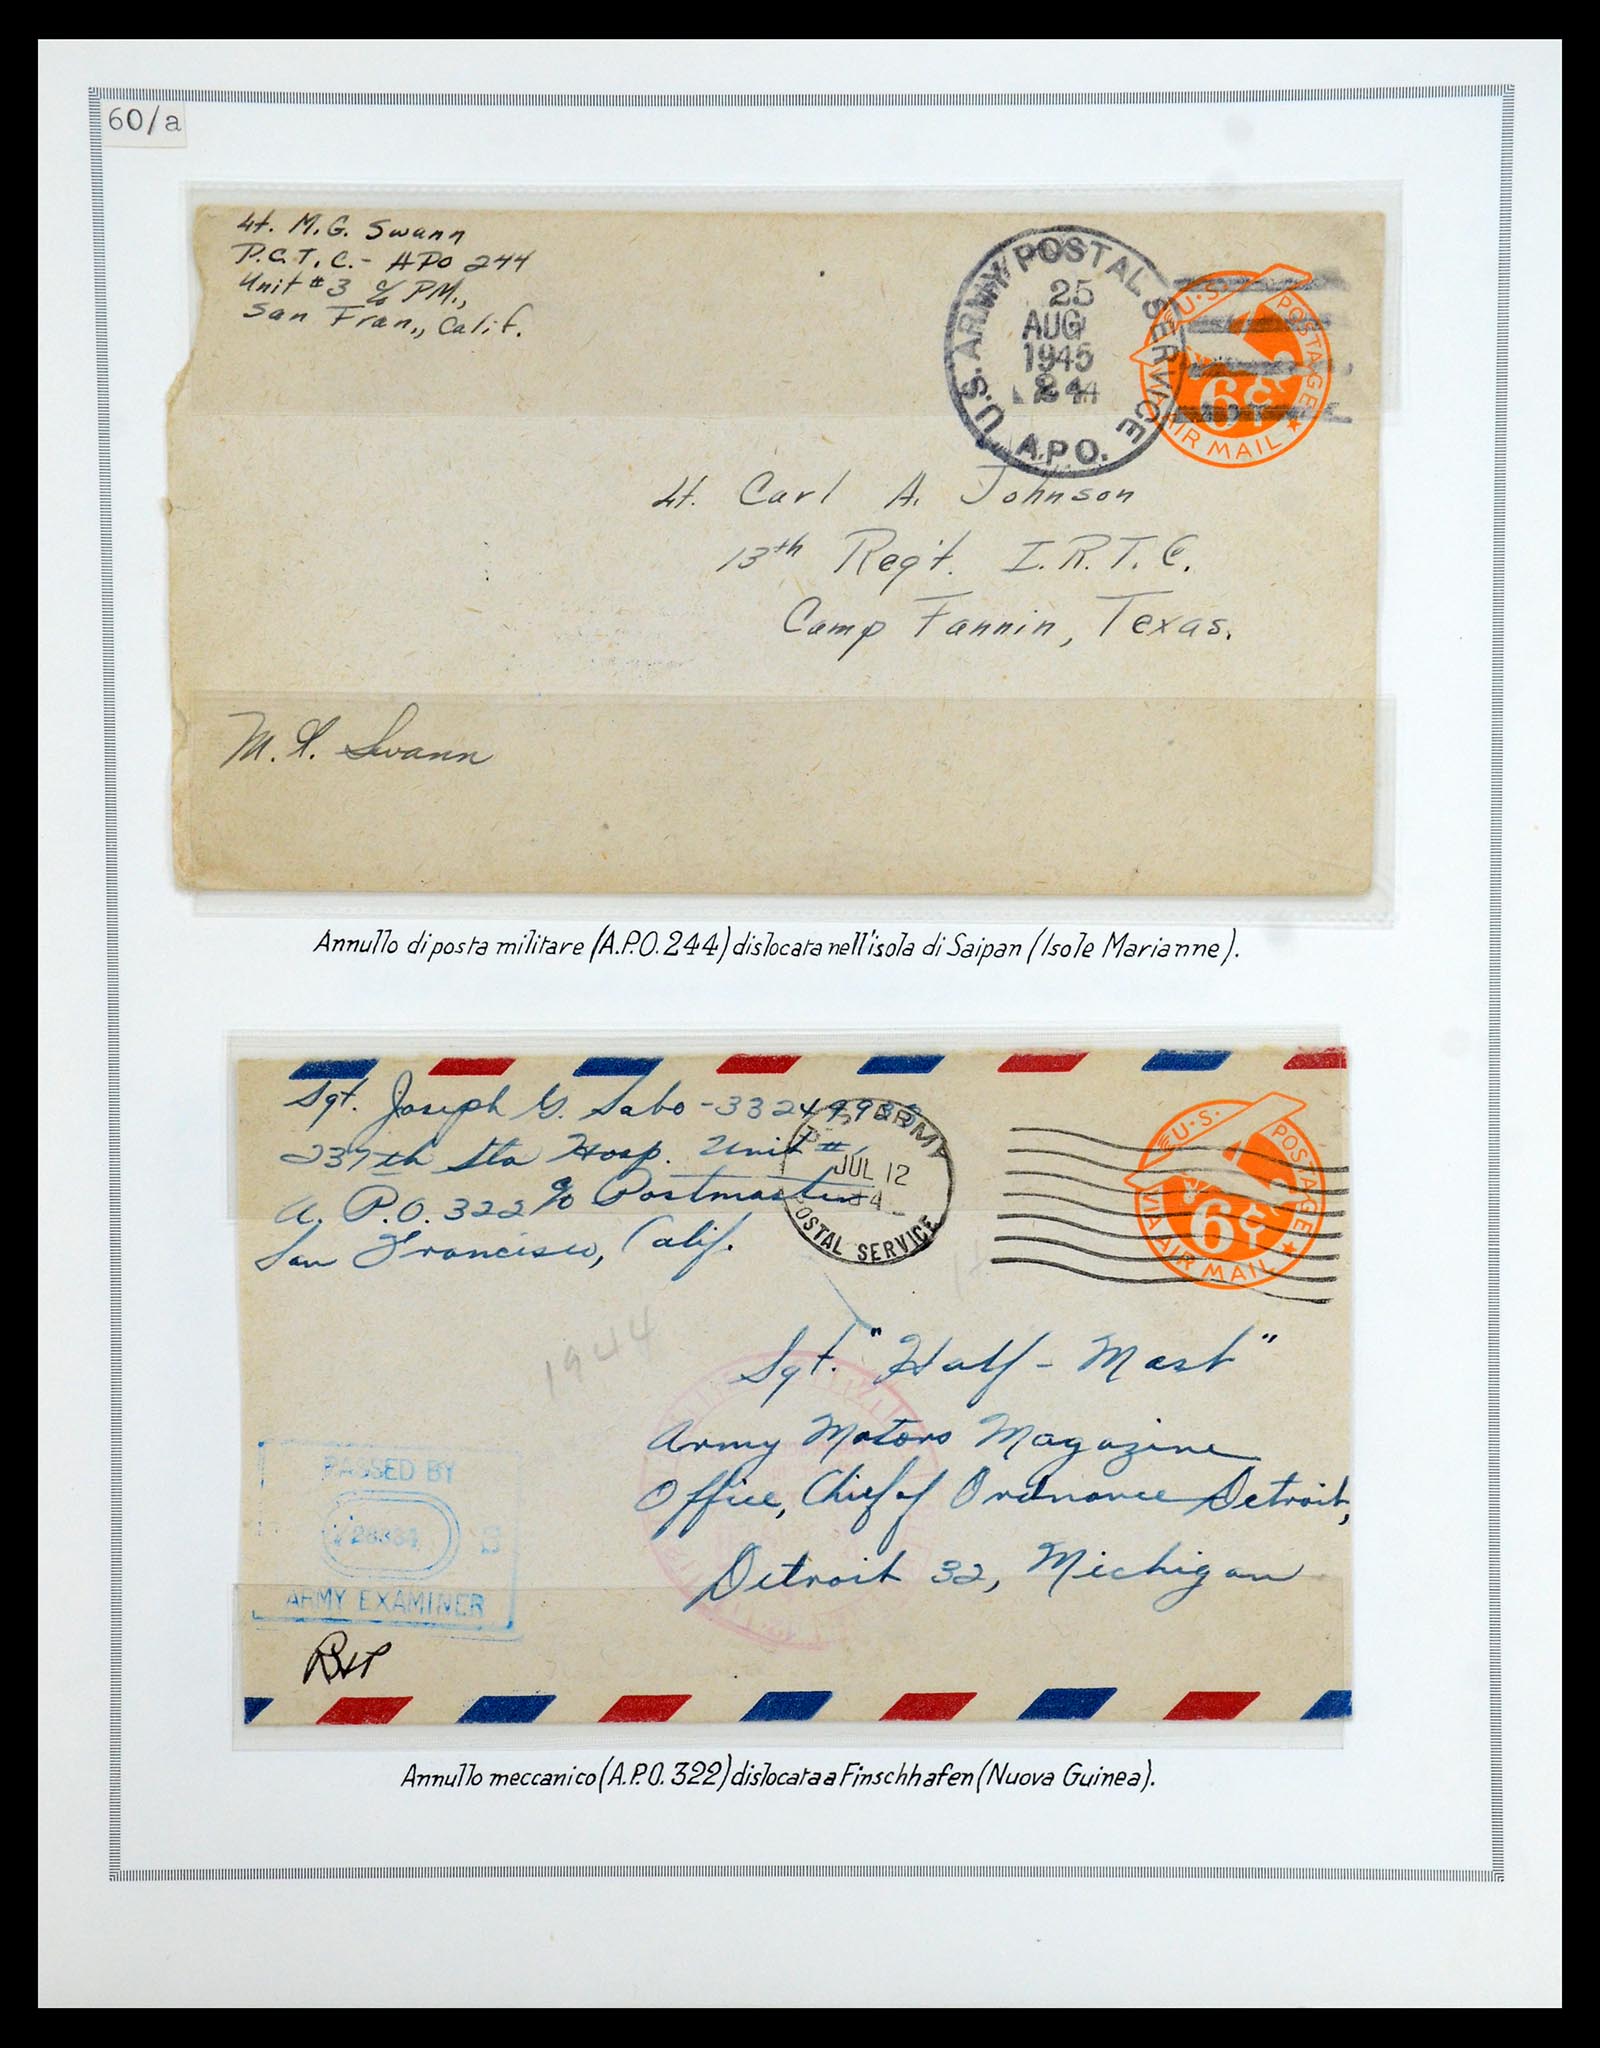 60/a
Lt. M. G. Swann
P.C.T.C. - APO 244
Unit #3 c/o PM.,
San Fran., Calif.
U.S. ARMY POSTAL SERVICE
25
AUG
1945
244
A.P.O.
U.S. POSTAGE
6¢
VIA AIR MAIL
Lt. Carl A. Johnson
13th Reg't. I.R.T.C.
Camp Fannin, Texas.
M. G. Swann
Annullo di posta militare (A.P.O. 244) dislocata nell'isola di Saipan (Isole Marianne).
Sgt. Joseph G. Sabo -
237th Sta Hosp. Unit #1
A. P.O. 322 c/o Postmaster
San Francisco, Calif.
ARMY
JUL 12
POSTAL SERVICE
U.S. POSTAGE
6¢
VIA AIR MAIL
1944
Sgt. "Half-Mast"
Army Motors Magazine
Office, Chief of Ordnance Detroit,
Detroit 32, Michigan
PASSED BY
ARMY EXAMINER
Annullo meccanico (A.P.O. 322) dislocata a Finschhafen (Nuova Guinea).